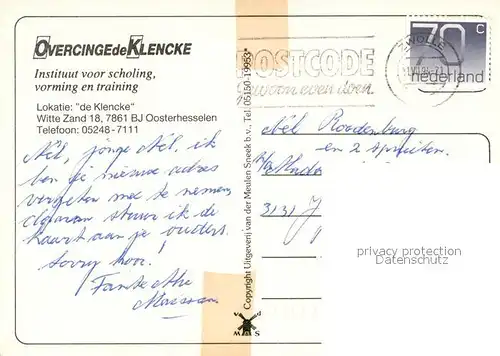 OVERCINGE de KLENCKE
Instituut voor scholing,
vorming en training
Lokatie: "de Klencke"
Witte Zand 18, 7861 BJ Oosterhesselen
Telefoon: 05248-7111
Nel, jonge Nel, ik
ben je nieuwe adres
vergeten mee te nemen,
daarom stuur ik de
kaart aan je ouders.
Sorry hoor!
Tante
Copyright Uitgeverij van der Meulen Sneek b.v., Tel. 05150-19953*
v d
M
W S
POSTCODE
gewoon even doen
ZWOLLE
70 c
nederland
Nel
en 2
3131
privacy protection
Datenschutz